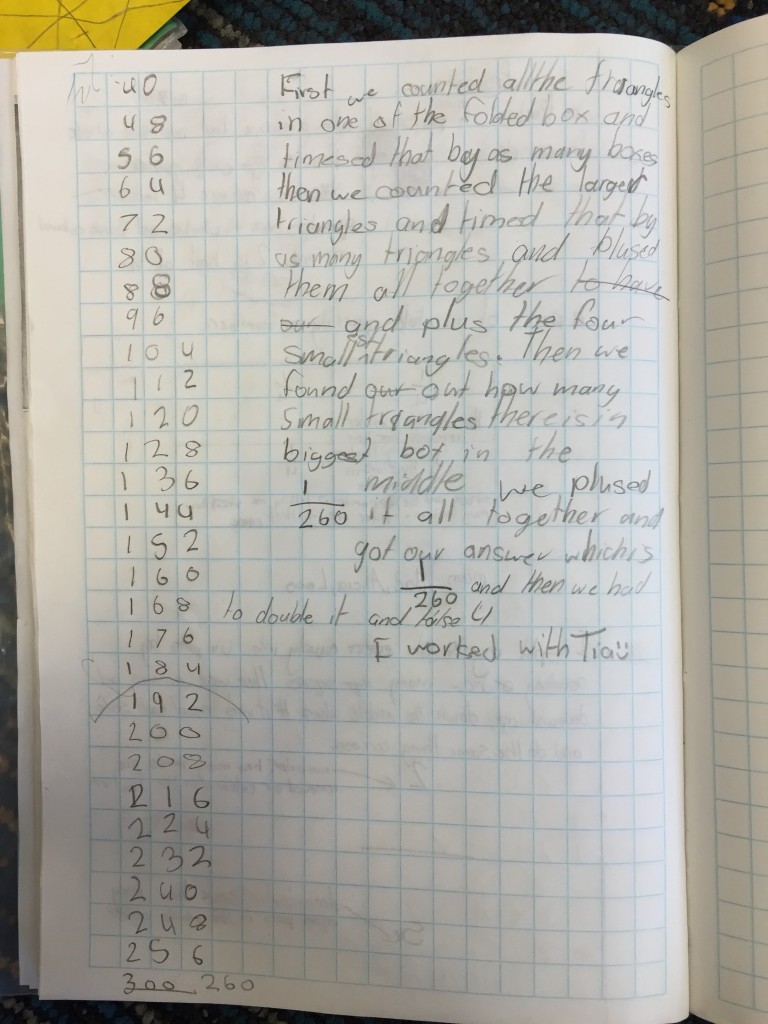 40
48
56
64
72
80
88
96
104
112
120
128
136
144
152
160
168
176
184
192
200
208
216
224
232
240
248
256
300 260
First we counted all the triangles
in one of the folded box and
timesed that by as many boxes
then we counted the larger
triangles and timed that by
as many triangles and plused
them all together to have
our and plus the four
smallest triangles. Then we
found our out how many
small triangles there is in
biggest box in the
middle we plused
1/260 it all together and
got our answer which is
1/260 and then we had
to double it and
I worked with Tia